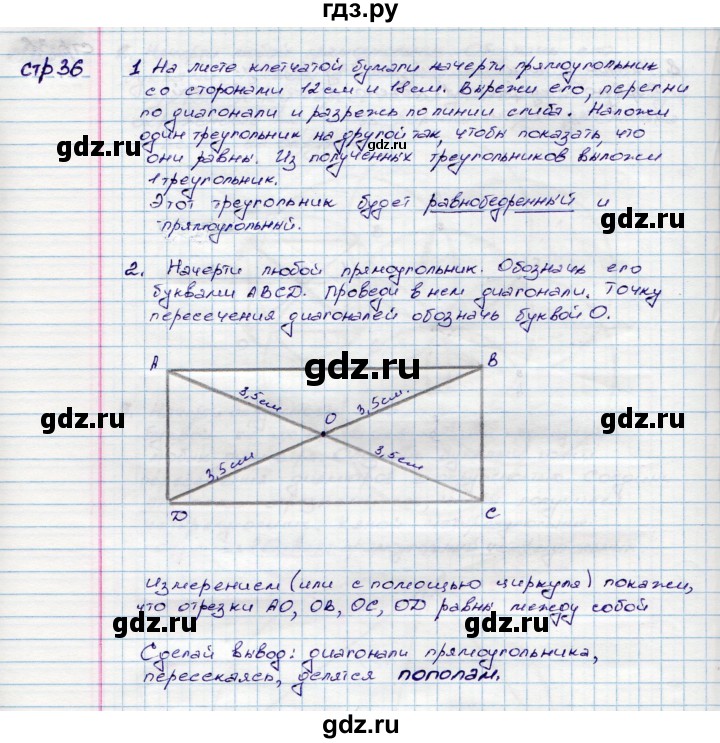 гдз.ру
стр 36
1 На листе клетчатой бумаги начерти прямоугольник
со сторонами 12 см и 18 см. Вырежи его, перегни
по диагонали и разрежь по линии сгиба. Наложи
один треугольник на другой так, чтобы показать, что
они равны. Из полученных треугольников выложи
1 треугольник.
Этот треугольник будет равнобедренный и
прямоугольный.
2. Начерти любой прямоугольник. Обозначь его
буквами ABCD. Проведи в нем диагонали. Точку
пересечения диагоналей обозначь буквой O.
A B
3,5 см 3,5 см.
O
3,5 см 3,5 см
D C
Измерением (или с помощью циркуля) покажи,
что отрезки AO, OB, OC, OD равны между собой
Сделай вывод: диагонали прямоугольника,
пересекаясь, делятся пополам.
gdz.ru
gdz.ru
gdz.ru
gdz.ru
gdz.ru
gdz.ru
gdz.ru
gdz.ru
gdz.ru
gdz.ru